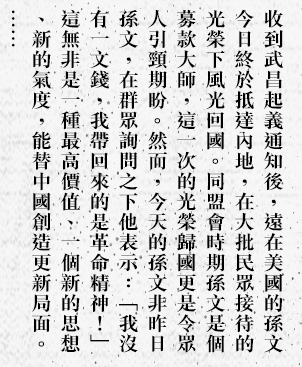 收到武昌起義通知後，遠在美國的孫文
今日終於抵達內地，在大批民眾接待的
光榮下風光回國。同盟會時期孫文是個
募款大師，這一次的光榮歸國更是令眾
人引頸期盼。然而，今天的孫文非昨日
孫文，在群眾詢問之下他表示：「我沒
有一文錢，我帶回來的是革命精神！」
這無非是一種最高價值、一個新的思想
、新的氣度，能替中國創造更新局面。
⋯⋯